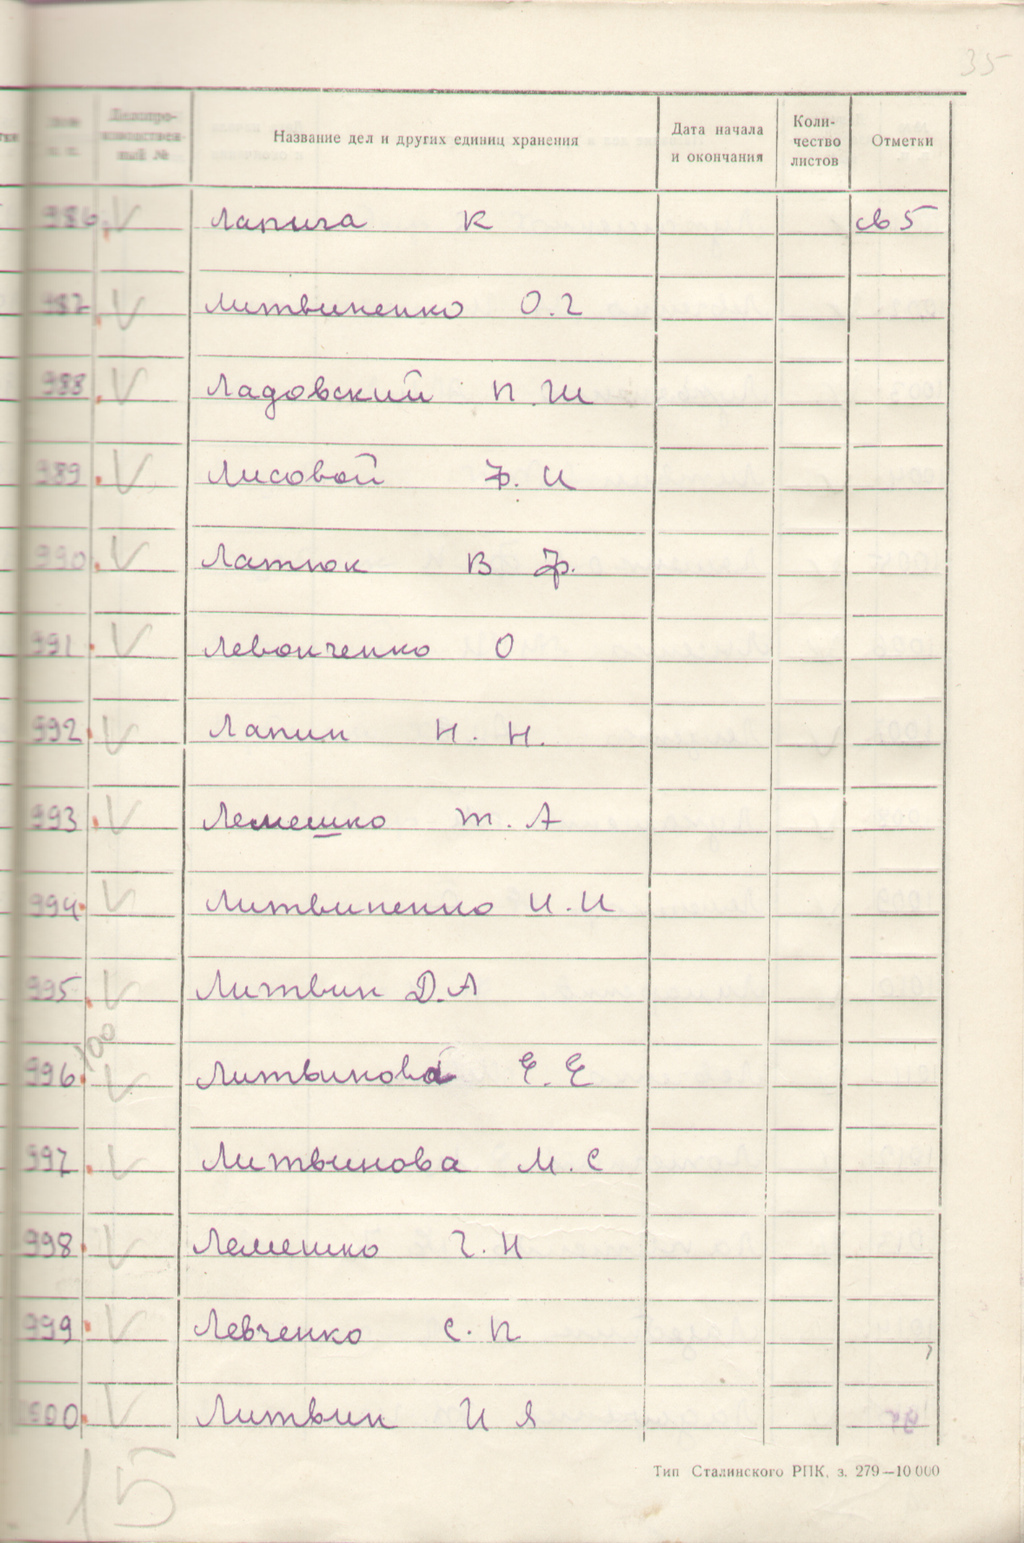 35
Делопро-
изводствен-
ный №
Название дел и других единиц хранения
Дата начала
и окончания
Коли-
чество
листов
Отметки
986. V Лапига К св 5
987. V Литвиненко О.Г
988. V Ладовский П.Ш
989. V Лисовой Ф. И
990. V Латюк В Ф.
991. V Левонченко О
992. V Лапин Н. Н.
993. V Лемешко Т. А
994. V Литвиненко И.И
995. V Литвин Д.А
100
996. V Литвинова Е. Е
997. V Литвинова М. С
998. V Лемешко Г. Н
999. V Левченко С. П
1000. V Литвин И Я
15
Тип Сталинского РПК, з. 279—10 000